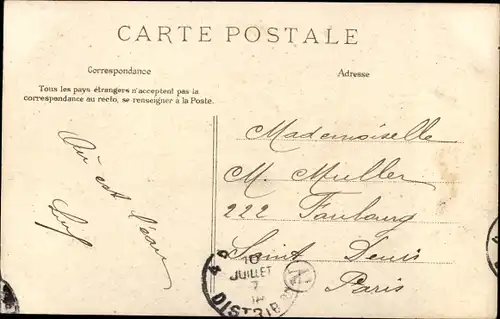 CARTE POSTALE
Correspondance
Adresse
Tous les pays étrangers n'acceptent pas la
correspondance au recto, se renseigner à la Poste.
Où est l'eau
Mademoiselle
M. Muller
222 Faubourg
Saint Denis
Paris
10
JUILLET
7
DISTRIB